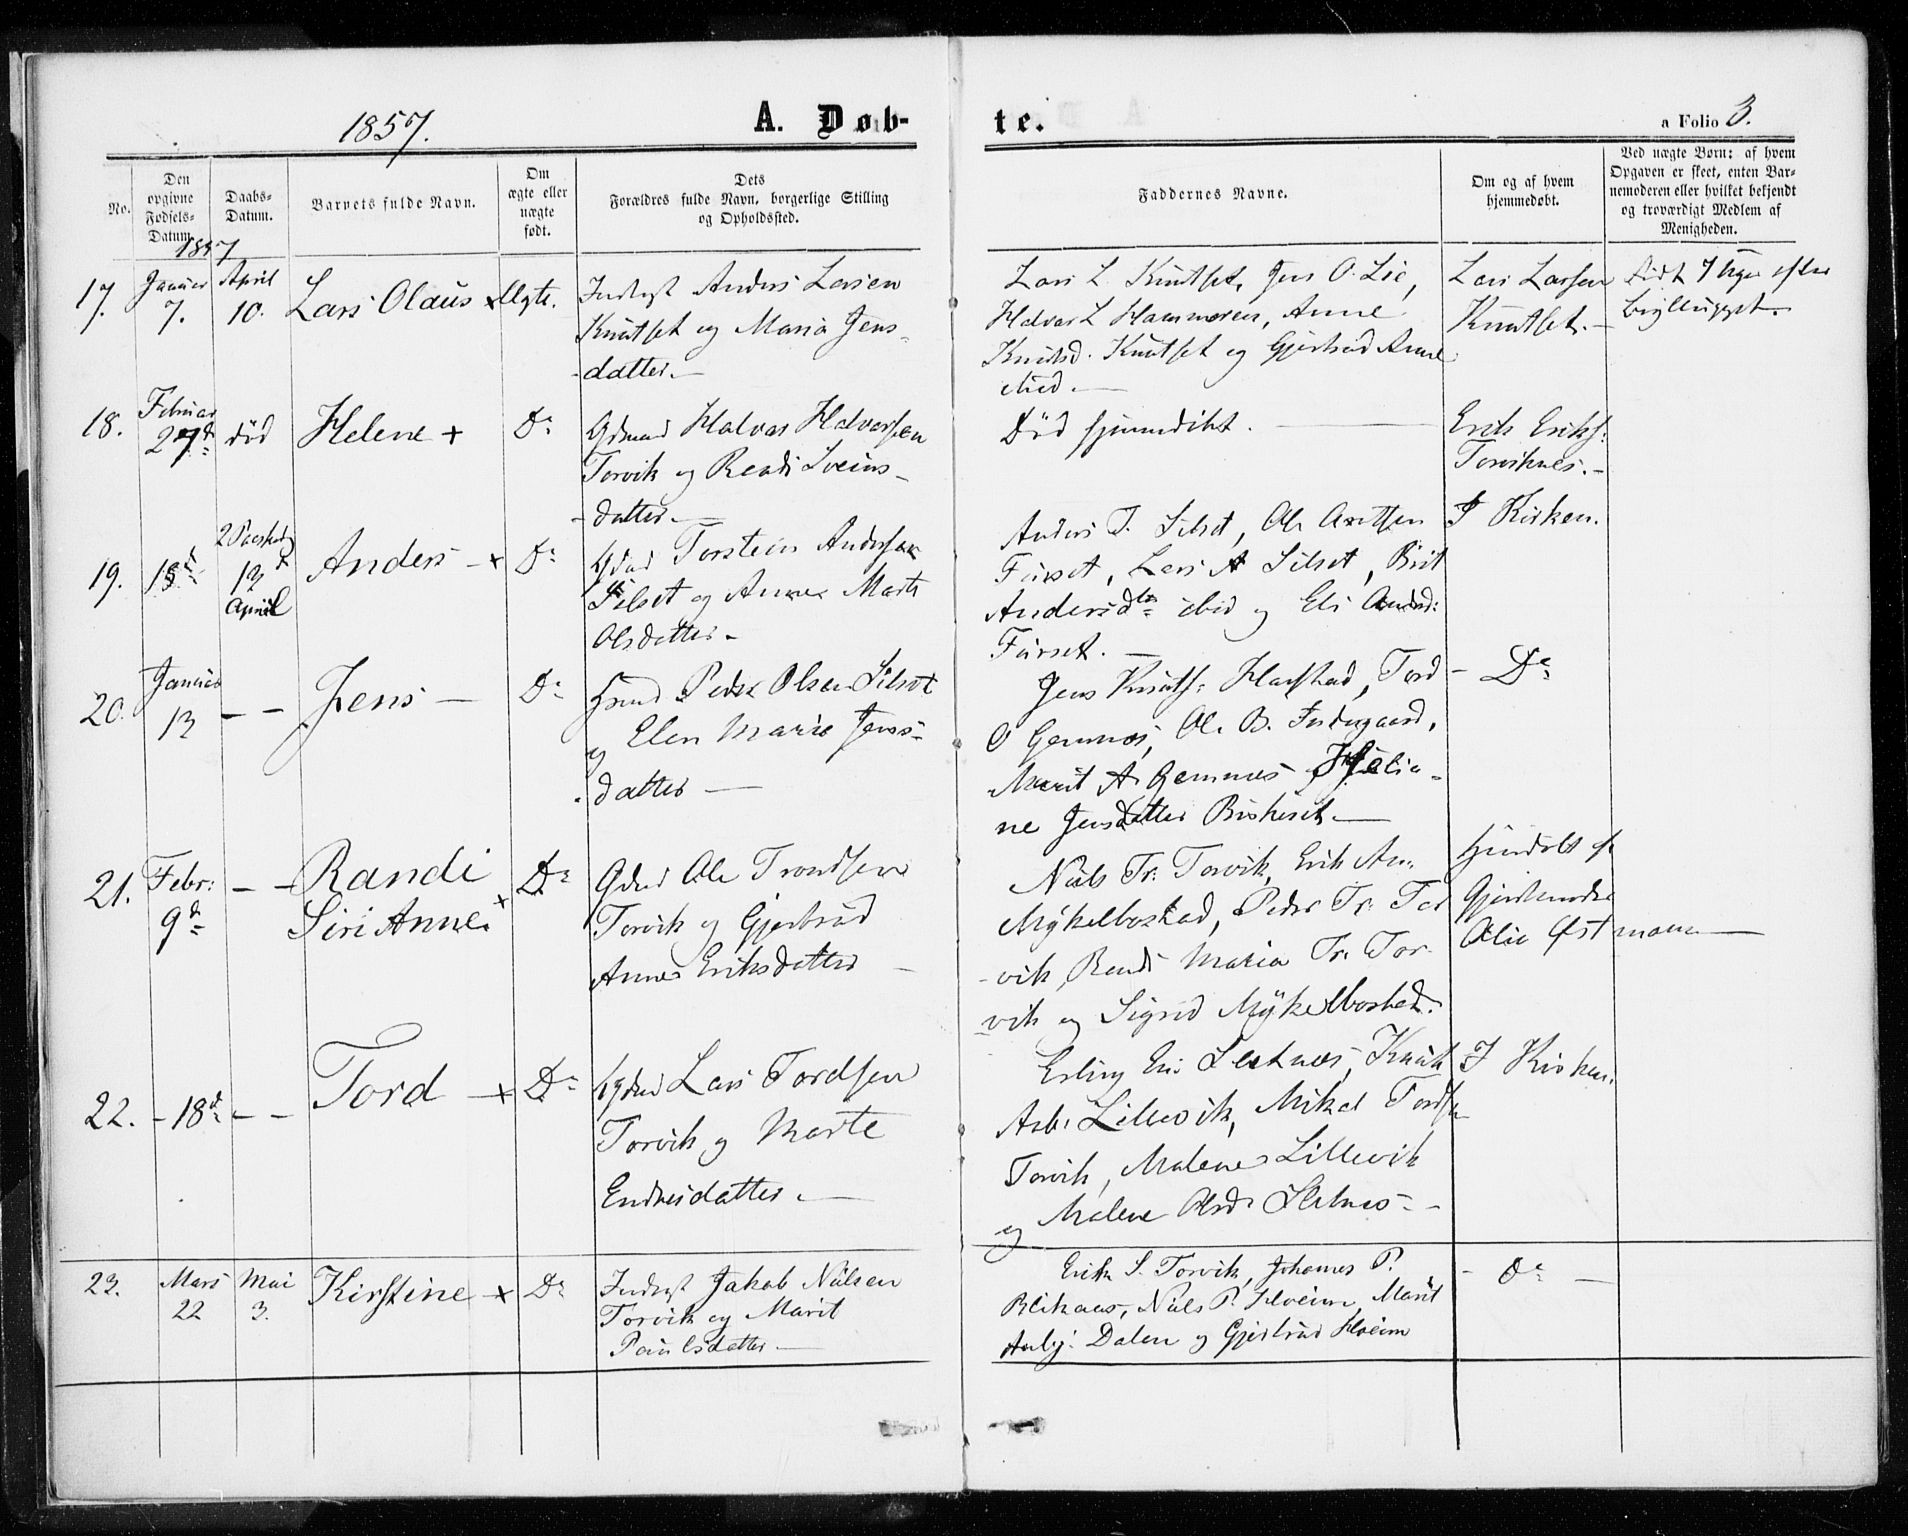 1857.
A. Døb-
te.
a Folio 3.
No.
Den opgivne Fødsels-Datum.
Daabs-Datum.
Barnets fulde Navn.
Om ægte eller uægte født.
Dets
Forældres fulde Navn, borgerlige Stilling
og Opholdssted.
Faddernes Navne.
Om og af hvem
hjemmedøbt.
Ved uægte Børn: af hvem
Opgaven er skeet, enten Bar-
nemoderen eller hvilket bekjendt
og troværdigt Medlem af
Menigheden.
1857
17.
Januar
7.
April
10.
Lars Olaus x
Ægte.
Indrgst Anders Larsen
Knutset og Maria Jens-
-datter.—
Lars L. Knutset, Jens O. Lie,
Halvar L Hammeren, Anne
Knutsd. Knutset og Gjertrud Anne
ibid.—
Lars Larsen
Knutset.—
født 7 Uger efter
brylluppet.
18.
Februar
27d
død
Helene +
Do
Gdmd Halvar Halvorsen
Torvik og Randi Sveins-
-datter.—
Død hjemmdøbt.—
Erik Eriks:
Torviknes.—
19.
18d
2 Paaskd
13d
April
Anders — x
Do
Gdmd Torstein Andersen
Silset og Anne Marte
Olsdatter—
Anders T. Silset, Ole Arntsen
Furset, Lars A Silset, Brit
Andersdtr ibid og Eli Andsd:
Furset.—
I Kirken.
20.
Januar
13
— —
Jens —
Do
Peder Olsen Silset
og Elen Marie Jens-
datter —
Jens Knuts: Harstad, Tord
O Gemnæs, Ole B. Indergaard,
Marit A Gemnæs, Julia-
ne Jensdatter Biskeset.—
— Do
21.
Febr:
9d
— —
Randi
Siri Anne x
Do
Gdmd Ole Trondsen
Torvik og Gjertrud
Anne Eriksdatter —
Nils Tr: Torvik, Erik An.
Mykelbostad, Peder Tr: Tor
-vik, Randi Maria Tr. Tor-
vik og Sigrid Mykelbostad.
hjmdøbt af
Gjordemoder
Olie Østmann —
22.
-18d
— —
Tord — x
Do
Gdmd Lars Tordsen
Torvik og Marte
Endresdatter.—
Erling Er: Sletnæs, Knut
Asb: Lillevik, Mikal Tords
Torvik, Malene Lillevik
og Malene Olsd: Sletnæs-—
I Kirken.
23.
Mars
22
Mai
3.
Kirstine — x
Do
Indrgst Jakob Nilsen
Torvik og Marit
Paulsdatter—
Erik S. Torvik, Johannes P.
Blikaas, Nils P. Hoeim, Marit
Dalen og Gjertrud Hoeim
— Do —